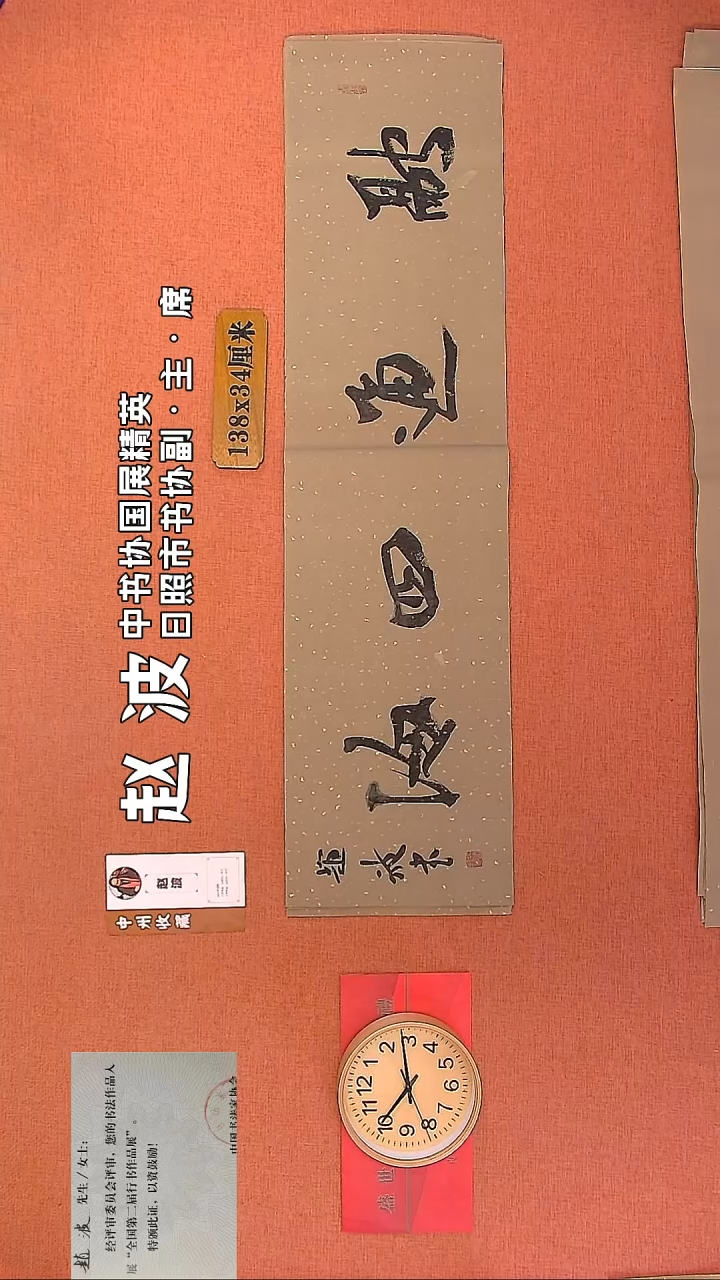 赵波
中书协国展精英
日照市书协副·主·席
138x34厘米
四海
赵波
中州收藏
赵 波 先生/女士:
经评审委员会评审，您的书法作品入
展“全国第二届行书作品展”。
特颁此证，以资鼓励!
中国书法家协会
盛世
12
1
2
3
4
5
6
7
8
9
10
11